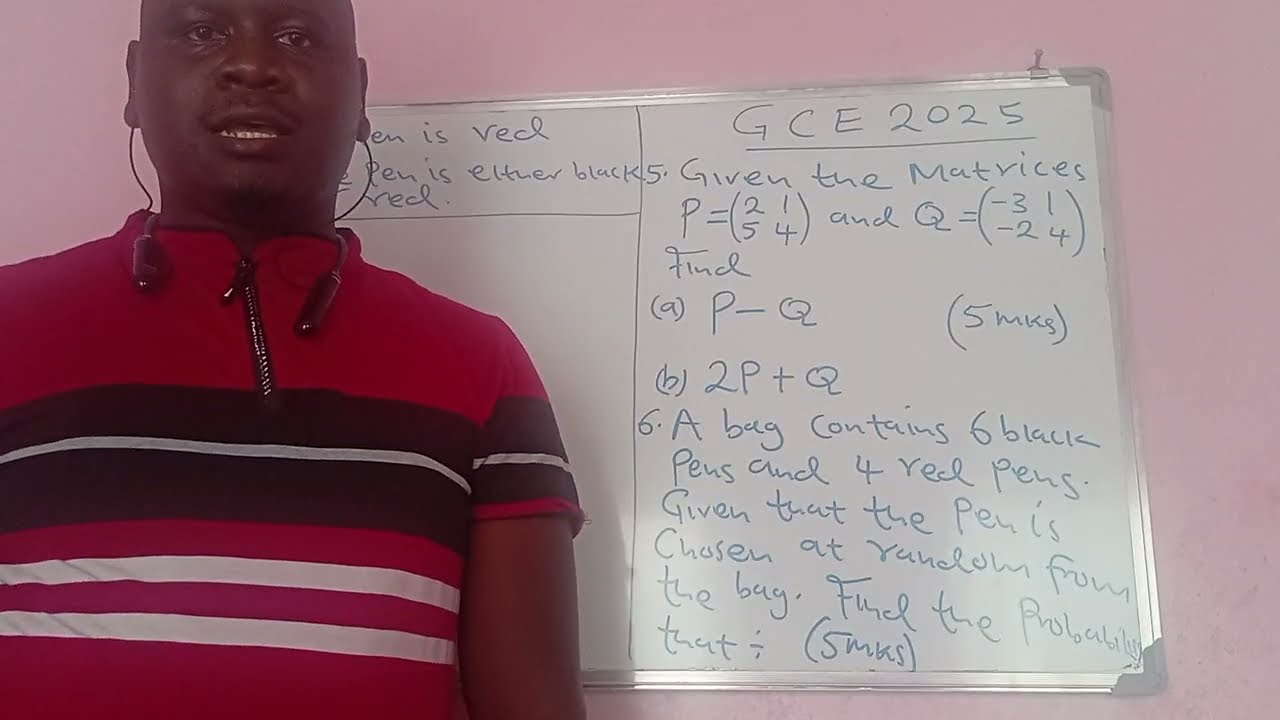 en is red
Pen is either black
red.
GCE 2025
5. Given the Matrices
P = (2 1 5 4) and Q = (-3 1 -2 4)
Find
(a) P - Q (5mks)
(b) 2P + Q
6. A bag contains 6 black
Pens and 4 red pens.
Given that the Pen is
Chosen at random from
the bag. Find the Probability
that :- (5mks)